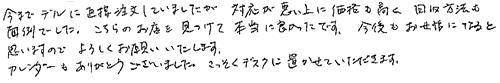 今まで デルに直接注文していましたが 対応が悪い上に価格も高く 回収方法も
面倒でした。こちらのお店を見つけて 本当に良かったです。今後もお世話になると
思いますので よろしくお願いいたします。
カレンダーもありがとうございました。さっそくデスクに置かせていただきます。